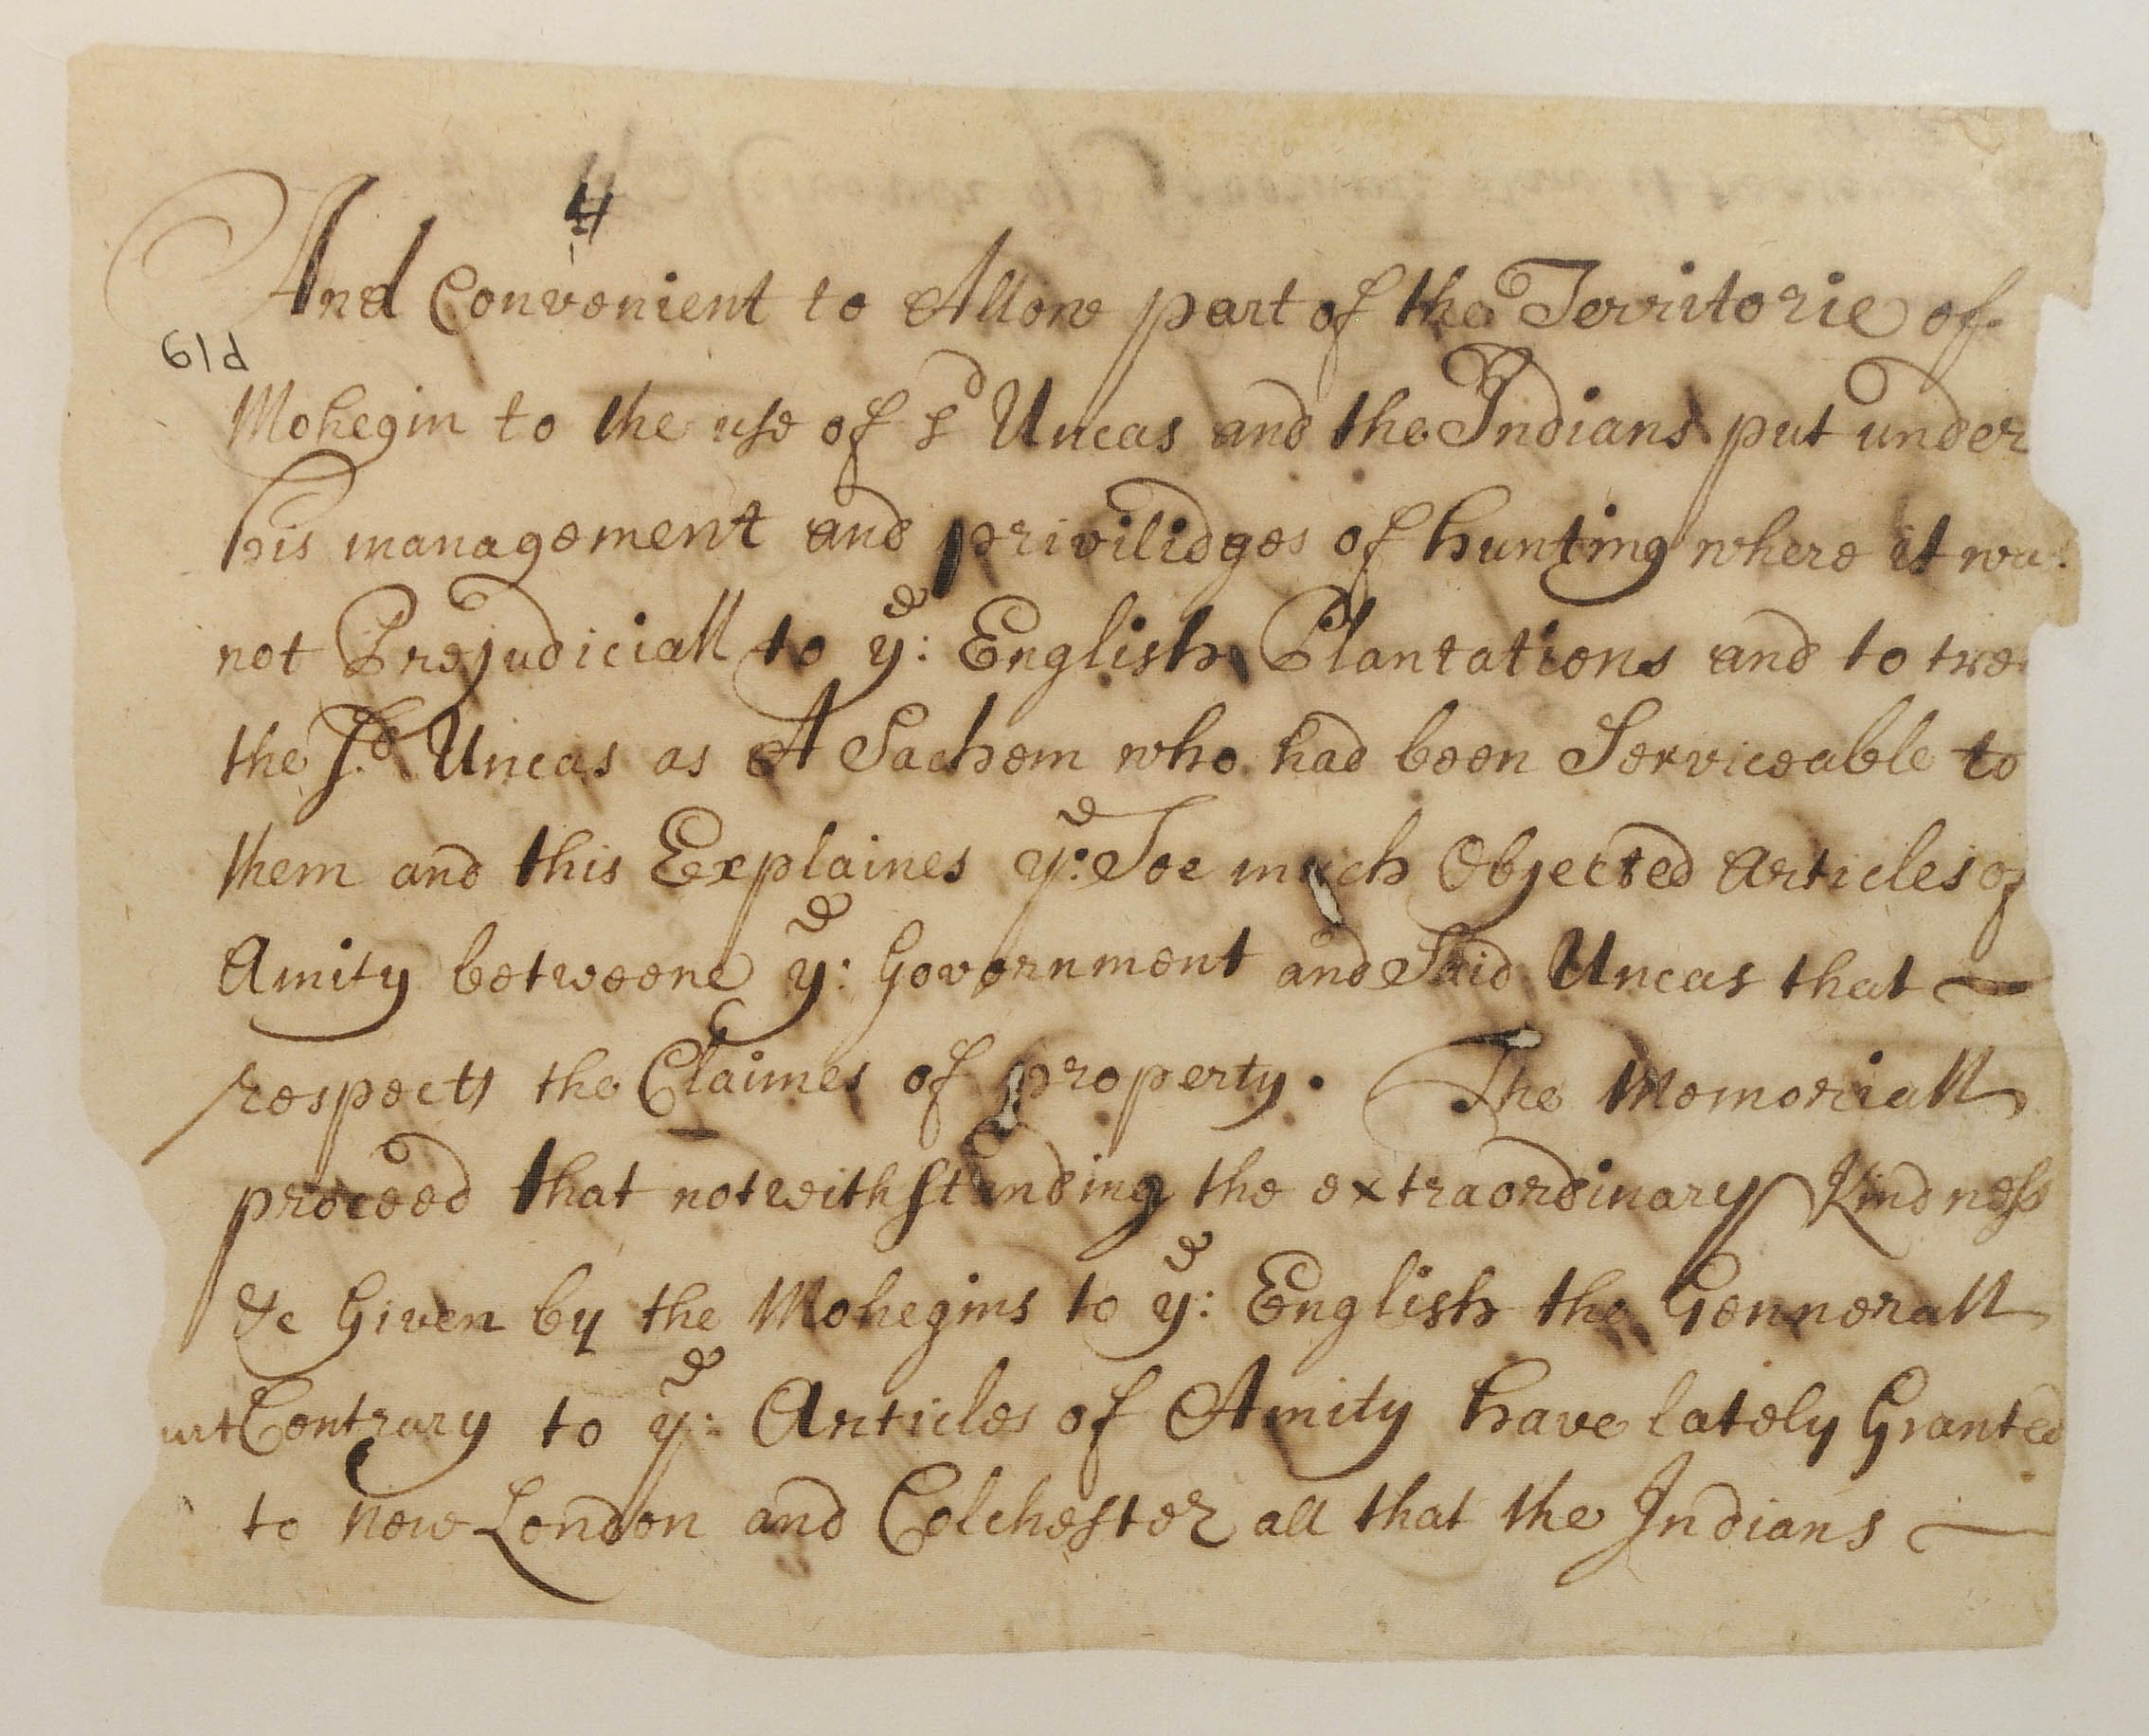 4
And Convenient to Allow part of the Territorie of
61d
Mohegin to the use of sd Uncas and the Indians put under
his management and privilidges of hunting where it wa
not Prejudiciall to ye: English Plantations and to trea
the Sd. Uncas as A Sachem who had been Serviceable to
them and this Explaines ye: Soe much Objected Articles of
Amity betweene ye: Government and Said Uncas that
respects the Claimes of property. The Memoriall
proceed that notwithstanding the extraordinary Kindness
&c Given by the Mohegins to ye: English the Gennerall
urt Contrary to ye: Articles of Amity have lately Granted
to New London and Colchester all that the Indians